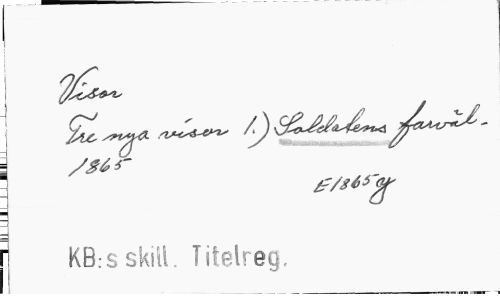 Visor
Tre nya visor 1.) Soldatens farväl.
1865
E1865g
KB:s skill. Titelreg.